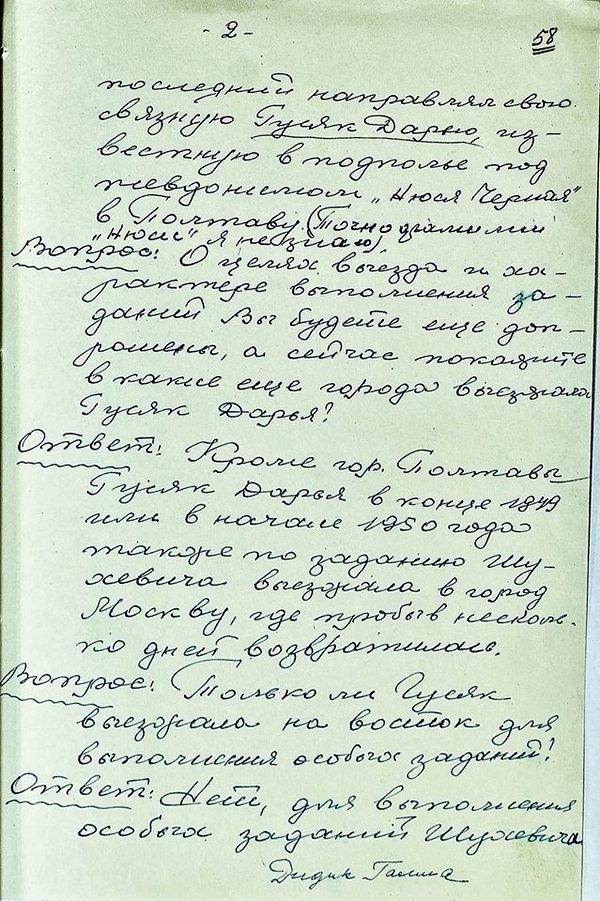 - 2 -
58
последний направлял свою
связную Гусяк Дарью, из-
вестную в подполье под
псевдонимом "Нюся Черная"
в Полтаву. (Точно фамилии
"Нюси" я не знаю).
Вопрос: О целях выезда и ха-
рактере выполнения за-
даний Вы будете еще доп-
рошены, а сейчас покажите
в какие еще города выезжала
Гусяк Дарья?
Ответ: Кроме гор. Полтавы
Гусяк Дарья в конце 1949
или в начале 1950 года
также по заданию Шу-
хевича выезжала в город
Москву, где пробыв несколь-
ко дней возвратилась.
Вопрос: Только ли Гусяк
выезжала на восток для
выполнения особых заданий?
Ответ: Нет, для выполнения
особых заданий Шухевича
Дидик Галина